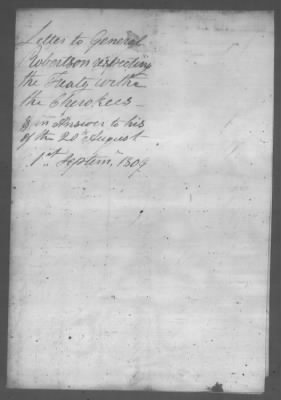 Letter to General
Robertson respecting
the Treaty with
the Cherokees —
& in Answer to his
of the 20th August
1st Septem. 1809